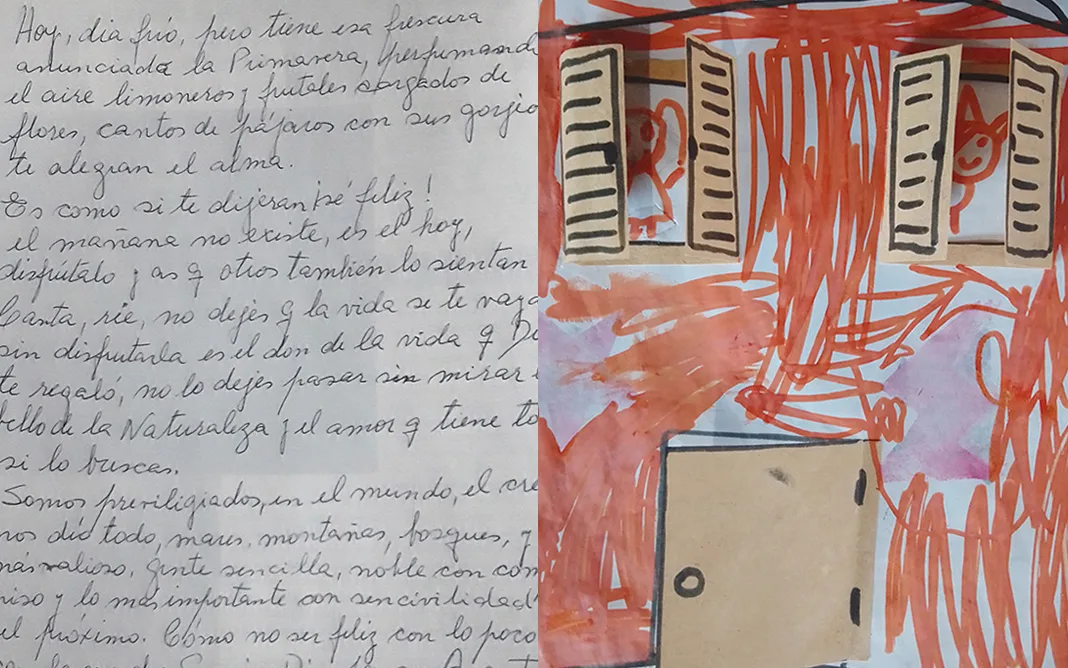 Hoy, dia frió, pero tiene esa frescura
anunciada la Primavera, perfumand
el aire limoneros y frutales cargados de
flores, cantos de pájaros con sus gorgio
te alegran el alma.
Es como si te dijeran ¡sé feliz!
el mañana no existe, es el hoy,
disfrútalo y as q otros también lo sientan
Canta, rie, no dejes q la vida se te vaya
sin disfrutarla es el don de la vida q Di
te regaló, no lo dejes pasar sin mirar
bello de la Naturaleza y el amor q tiene to
si lo buscas.
Somos previligiados, en el mundo, el cre
nos dió todo, mares, montañas, bosques, y
más valioso, gente sencilla, noble con com
miso y lo más importante con sencivilidad
el próximo. Cómo no ser feliz con lo poco